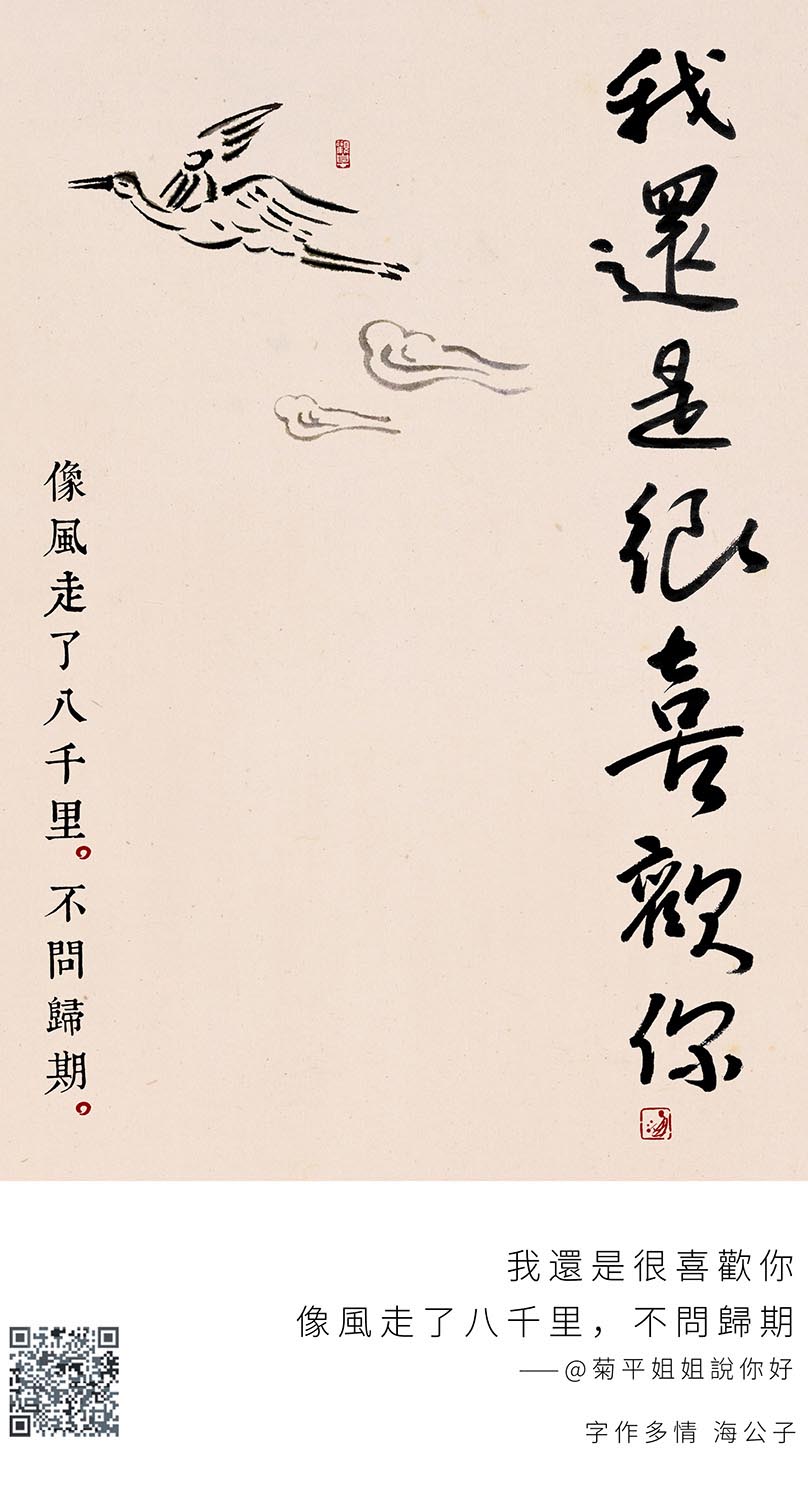 我還是很喜歡你
像風走了八千里。不問歸期。
我還是很喜歡你
像風走了八千里，不問歸期
——@菊平姐姐說你好
字作多情 海公子